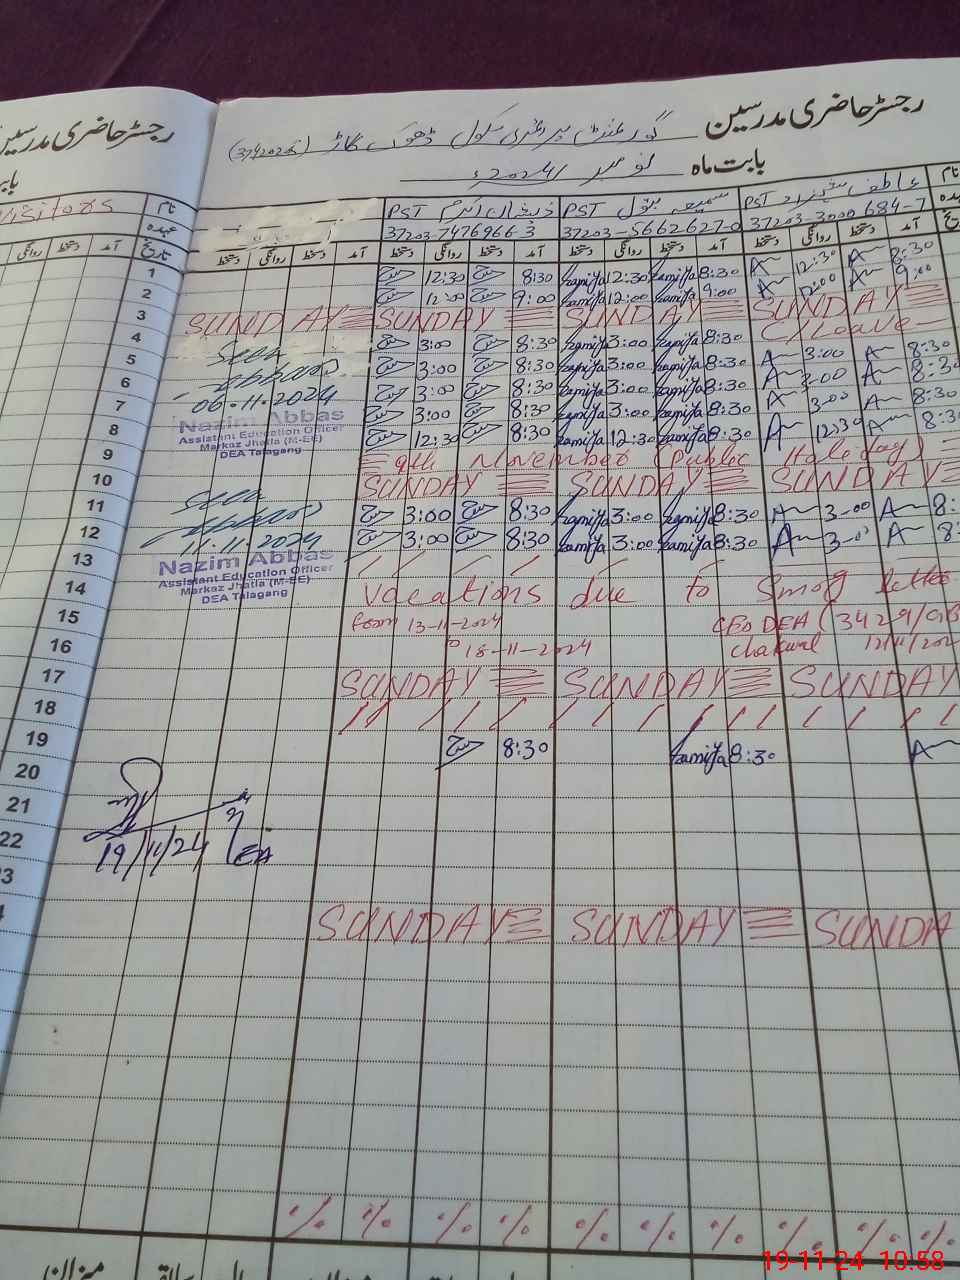 رجسٹر حاضری مدرسین گورنمنٹ پرائمری سکول ڈھوک
رجسٹر حاضری مدرسین
بابت ماہ نومبر 2024ء
نام عاطف شہزاد PST سمیعہ بتول PST ذیشان اکرم PST
نام Visitors
عہدہ 37203-3000684-7 37203-5662627-0 37203-7476966-3
عہدہ
آمد دستخط روانگی دستخط آمد دستخط روانگی دستخط آمد دستخط روانگی دستخط آمد دستخط روانگی دستخط
تاریخ آمد دستخط روانگی
1 12:30 8:30 Samiya 12:30 Samiya 8:30 A 12:30 A 8:30
2 12:00 9:00 Samiya 12:00 Samiya 9:00 A 12:00 A 9:00
3 SUNDAY SUNDAY SUNDAY SUNDAY
4 3:00 8:30 Samiya 3:00 Samiya 8:30 C/Leave
5 Seen 3:00 8:30 Samiya 3:00 Samiya 8:30 A 3:00 A 8:30
6 Abbas 3:00 8:30 Samiya 3:00 Samiya 8:30 A 3:00 A 8:30
06-11-2024
7 3:00 8:30 Samiya 3:00 Samiya 8:30 A 3:00 A 8:30
8 12:30 8:30 Samiya 12:30 Samiya 8:30 A 12:30 A 8:3
Nazim Abbas
Assistant Education Officer
Markaz Jhatla (M-EE)
DEA Talagang
9 9th November (Public Holeday)
10 SUNDAY SUNDAY SUNDAY
11 Seen 3:00 8:30 Samiya 3:00 Samiya 8:30 A 3-00 A 8:
12 Abbas 3:00 8:30 Samiya 3:00 Samiya 8:30 A 3-00 A 8:
11.11.2024
Nazim Abbas
Assistant Education Officer
Markaz Jhatla (M-EE)
DEA Talagang
13
14 Vacations due to Smog letter
15 from 13-11-2024 CEO DEA (3429/
16 to 18-11-2024 Chakwal 12/11/202
17 SUNDAY SUNDAY SUNDAY
18
19 8:30 Samiya 8:30 A
20
21
19/11/24
22
3
4 SUNDAY SUNDAY SUNDA
% % % % % % % % % %
میزان
19-11-24 10:58